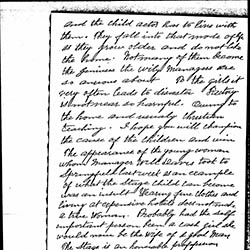 and the child actor has to live with
them. They fall into that mode of life
as they grow older and do not like
the home. Not many of them become
the geniuses the wily Managers are
so anxious about. To the girls it
very often leads to disaster.
is not near so harmful. Owing to
the home and usually Christian
teaching. I hope you will champion
the cause of the children and win
The appearance of the young woman
whom Manager took to
Springfield last week is an example
of what the stage child can become
was an insult. Wearing fine clothes and
living at expensive hotels does not make
a true woman. Probably had the self-
important person been a
would
The Stage is an honorable profession